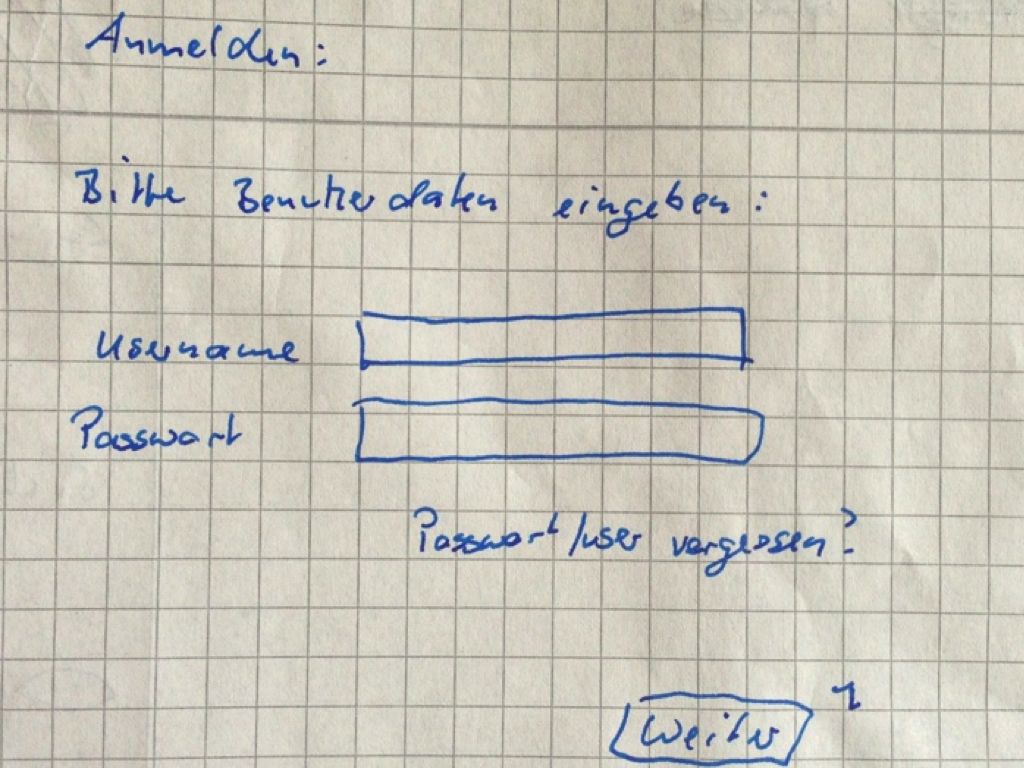 Anmelden:
Bitte Benutzerdaten eingeben:
Username
Passwort
Passwort/user vergessen?
Weiter 1